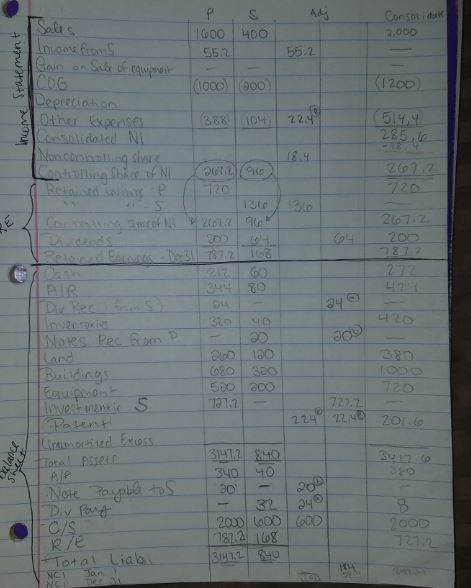 P S Adj Consolidate
Income Statement
Sales 1600 400 2,000
Income from S 55.2 55.2 —
Gain on Sale of equipment — — —
COG (1000) (200) (1200)
Depreciation
Other Expenses (388) (104) 22.4 (514.4)
Consolidated NI 285.6
Noncontrolling share 18.4 -18.4
Controlling Share of NI 267.2 96 267.2
Retained Earnings - P 720 720
" " - S 136 136 —
Controlling Share of NI 267.2 96 267.2
Dividends 200 64 64 200
Retained Earnings - Dec 31 787.2 168 787.2
Balance Sheet
Cash 212 60 272
A/R 344 80 424
Div Rec (from S) 24 — 24 —
Inventorie 380 40 420
Notes Rec from P — 20 20 —
Land 260 120 380
Buildings 680 320 1000
Equipment 520 200 720
Investment in S 727.2 — 727.2 —
Patent 224 22.4 201.6
Unamortized Excess
Total Assets 3147.2 840 3417.6
A/P 340 40 380
Note Payable to S 20 — 20 —
Div Pay — 32 24 8
C/S 2000 600 600 2000
R/E 787.2 168 727.2
Total Liab 3147.2 840
NCI Jan 1
NCI Dec 31